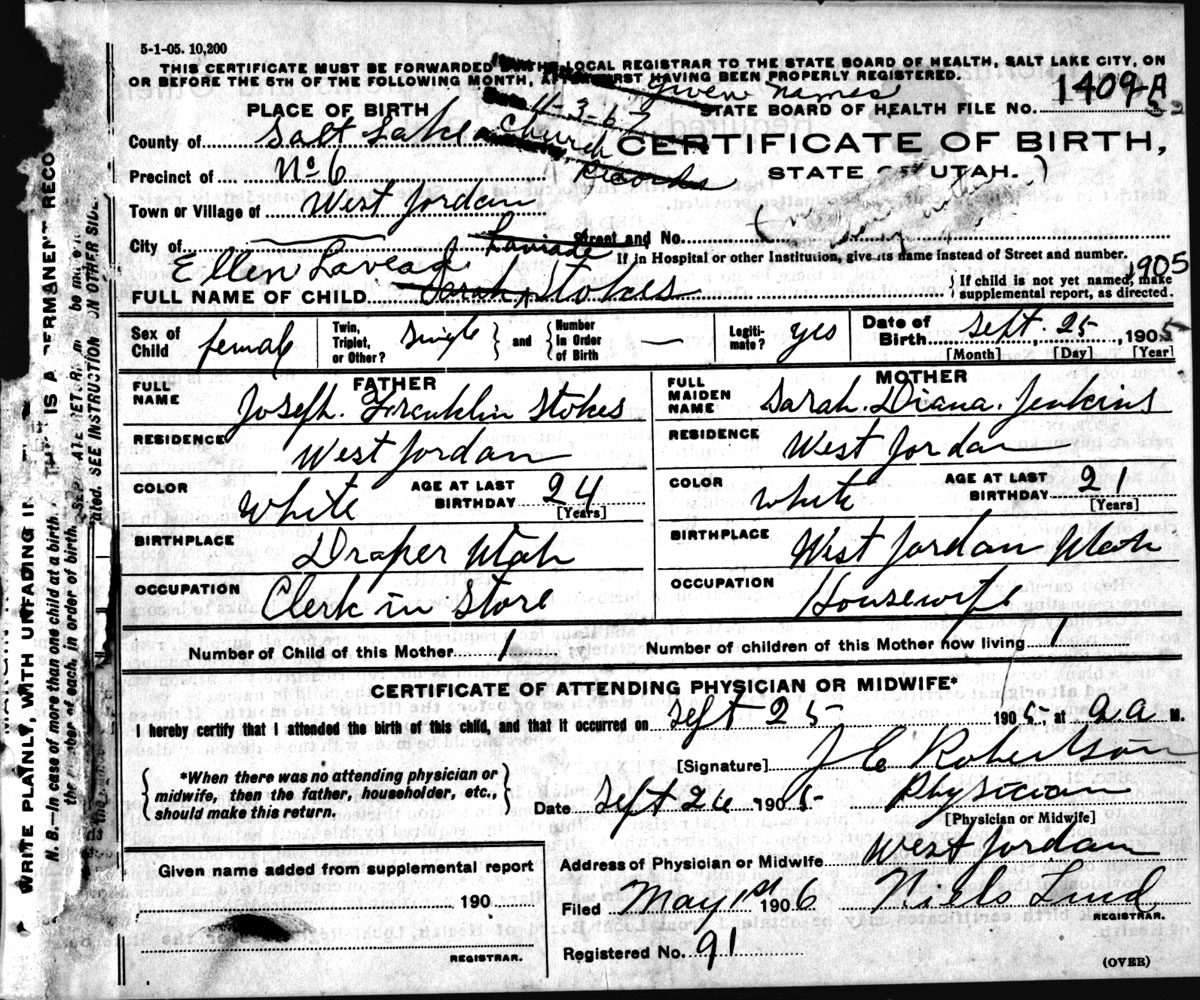 5-1-05. 10,200
THIS CERTIFICATE MUST BE FORWARDED LOCAL REGISTRAR TO THE STATE BOARD OF HEALTH, SALT LAKE CITY, ON
OR BEFORE THE 5TH OF THE FOLLOWING MONTH, HAVING BEEN PROPERLY REGISTERED.
given names
PLACE OF BIRTH
4-3-67
STATE BOARD OF HEALTH FILE NO. 1409-A
County of Salt Lake
Church
CERTIFICATE OF BIRTH,
Precinct of No 6
Records
STATE OF UTAH.
Town or Village of West Jordan
City of
Street and No.
If in Hospital or other Institution, give its name instead of Street and number.
1905
Ellen
FULL NAME OF CHILD Sarah Stokes
{ If child is not yet named, make
supplemental report, as directed.
Sex of Child female
Twin, Triplet, or Other? single } and { Number In Order of Birth —
Legiti-mate? yes
Date of Birth Sept. 25, 1905
[Month] [Day] [Year]
FATHER
FULL NAME Joseph. Franklin Stokes
RESIDENCE West Jordan
COLOR White AGE AT LAST BIRTHDAY 24 [Years]
BIRTHPLACE Draper Utah
OCCUPATION Clerk in Store
MOTHER
FULL MAIDEN NAME Sarah. Diana. Jenkins
RESIDENCE West Jordan
COLOR White AGE AT LAST BIRTHDAY 21 [Years]
BIRTHPLACE West Jordan Utah
OCCUPATION Housewife
Number of Child of this Mother 1 Number of children of this Mother now living 1
CERTIFICATE OF ATTENDING PHYSICIAN OR MIDWIFE*
I hereby certify that I attended the birth of this child, and that it occurred on Sept 25 1905, at 2 a M.
*When there was no attending physician or
midwife, then the father, householder, etc.,
should make this return.
[Signature] J E Robertson
Date Sept 26 1905 Physician
[Physician or Midwife]
Address of Physician or Midwife West Jordan
Given name added from supplemental report
190
REGISTRAR.
Filed May 1st 1906 Niels Lind
REGISTRAR.
Registered No. 91
(OVER)
WRITE PLAINLY, WITH UNFADING
N. B.—In case of more than one child at a birth
of each, in order of birth.
SEE INSTRUCTION ON OTHER SIDE